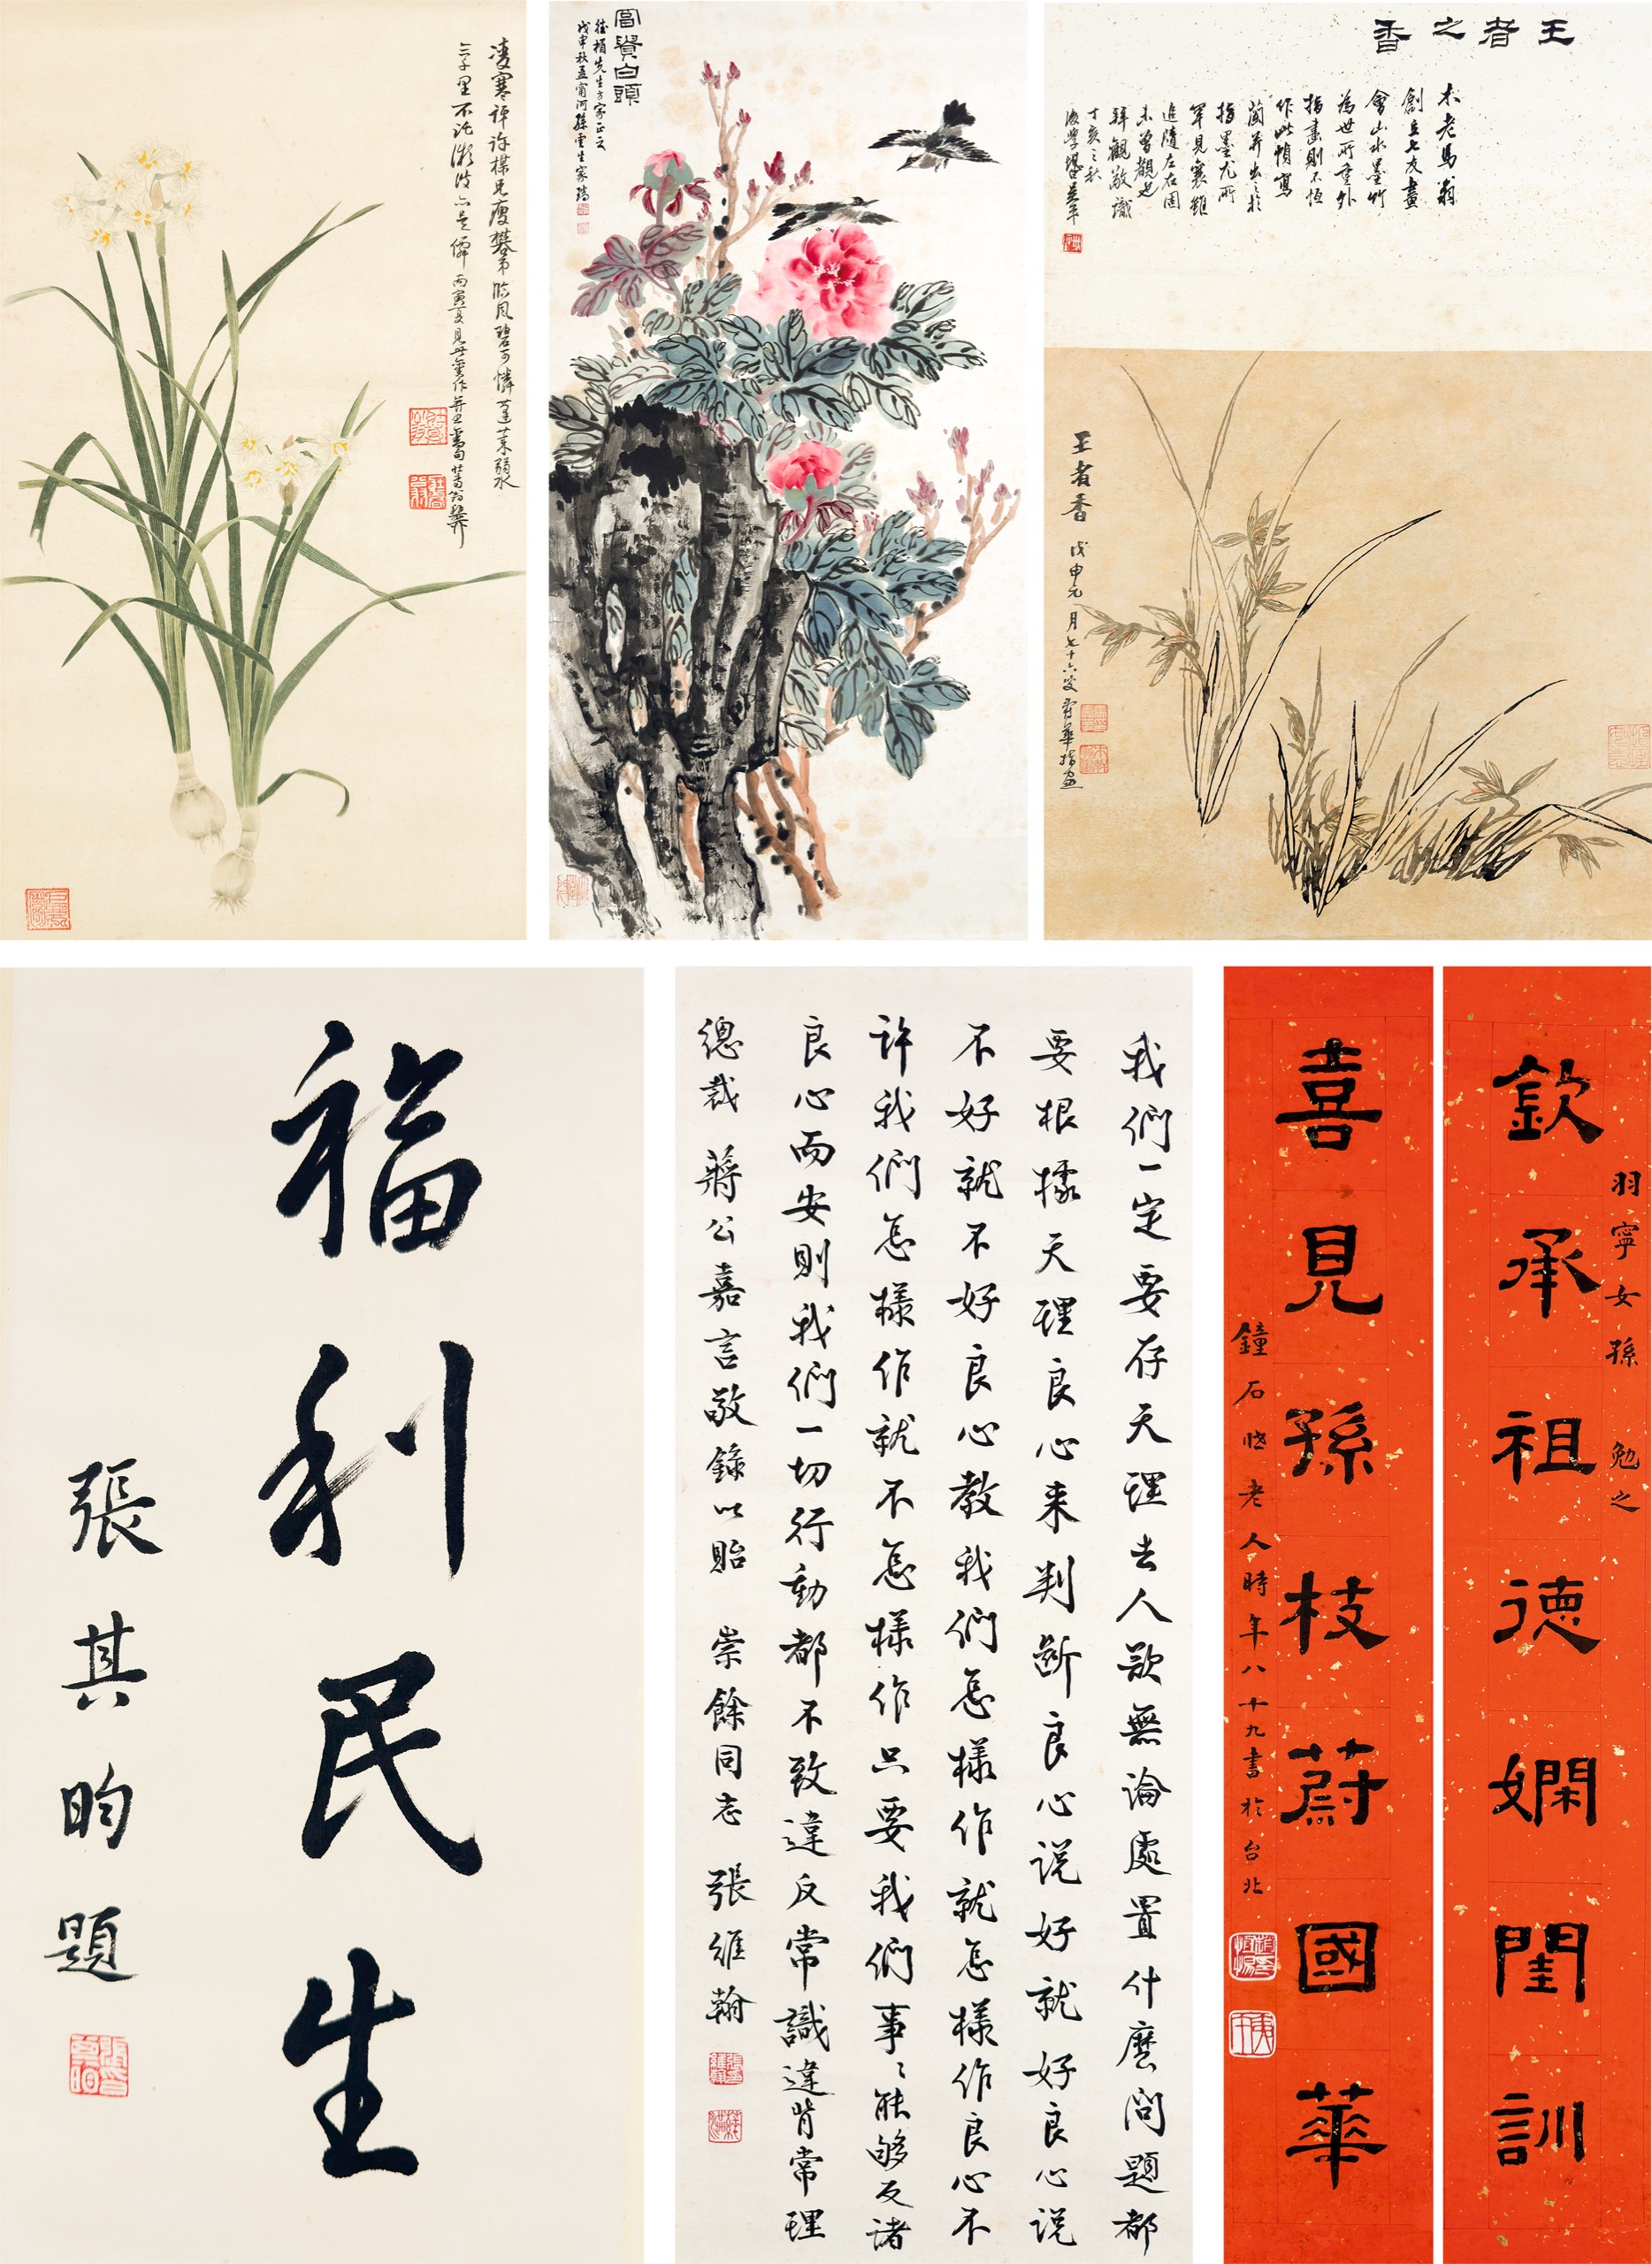 凌寒評許楳兄瘦攀弟臨風碧可憐蓬萊弱水
三千里不託微波亦是僊
富貴白頭
戊申秋孟甯河孫雲生家瑞
王者之香
木老馬翁
創立七友畫
會山水墨竹
為世所重外
指畫則不恆
作此幀寫
蘭并出之於
指墨尤所
罕見襄雖
追隨左右固
未曾覩也
拜觀敬識
丁亥之秋
王者香
戊申元月七十六叟壽華指画
福利民生
張其昀題
我們一定要存天理去人欲無論處置什麼問題都
要根據天理良心来判斷良心说好就好良心说
不好就不好良心教我們怎樣作就怎樣作良心不
许我們怎樣作就不怎樣作只要我們事〻能够反诸
良心而安則我們一切行動都不致違反常識違背常理
總裁 蔣公嘉言敬錄以貽 崇餘同志 張維翰
羽寧女孫 勉之
欽承祖德嫻閨訓
喜見孫枝蔚國華
鐘石老人時年八十九書於台北